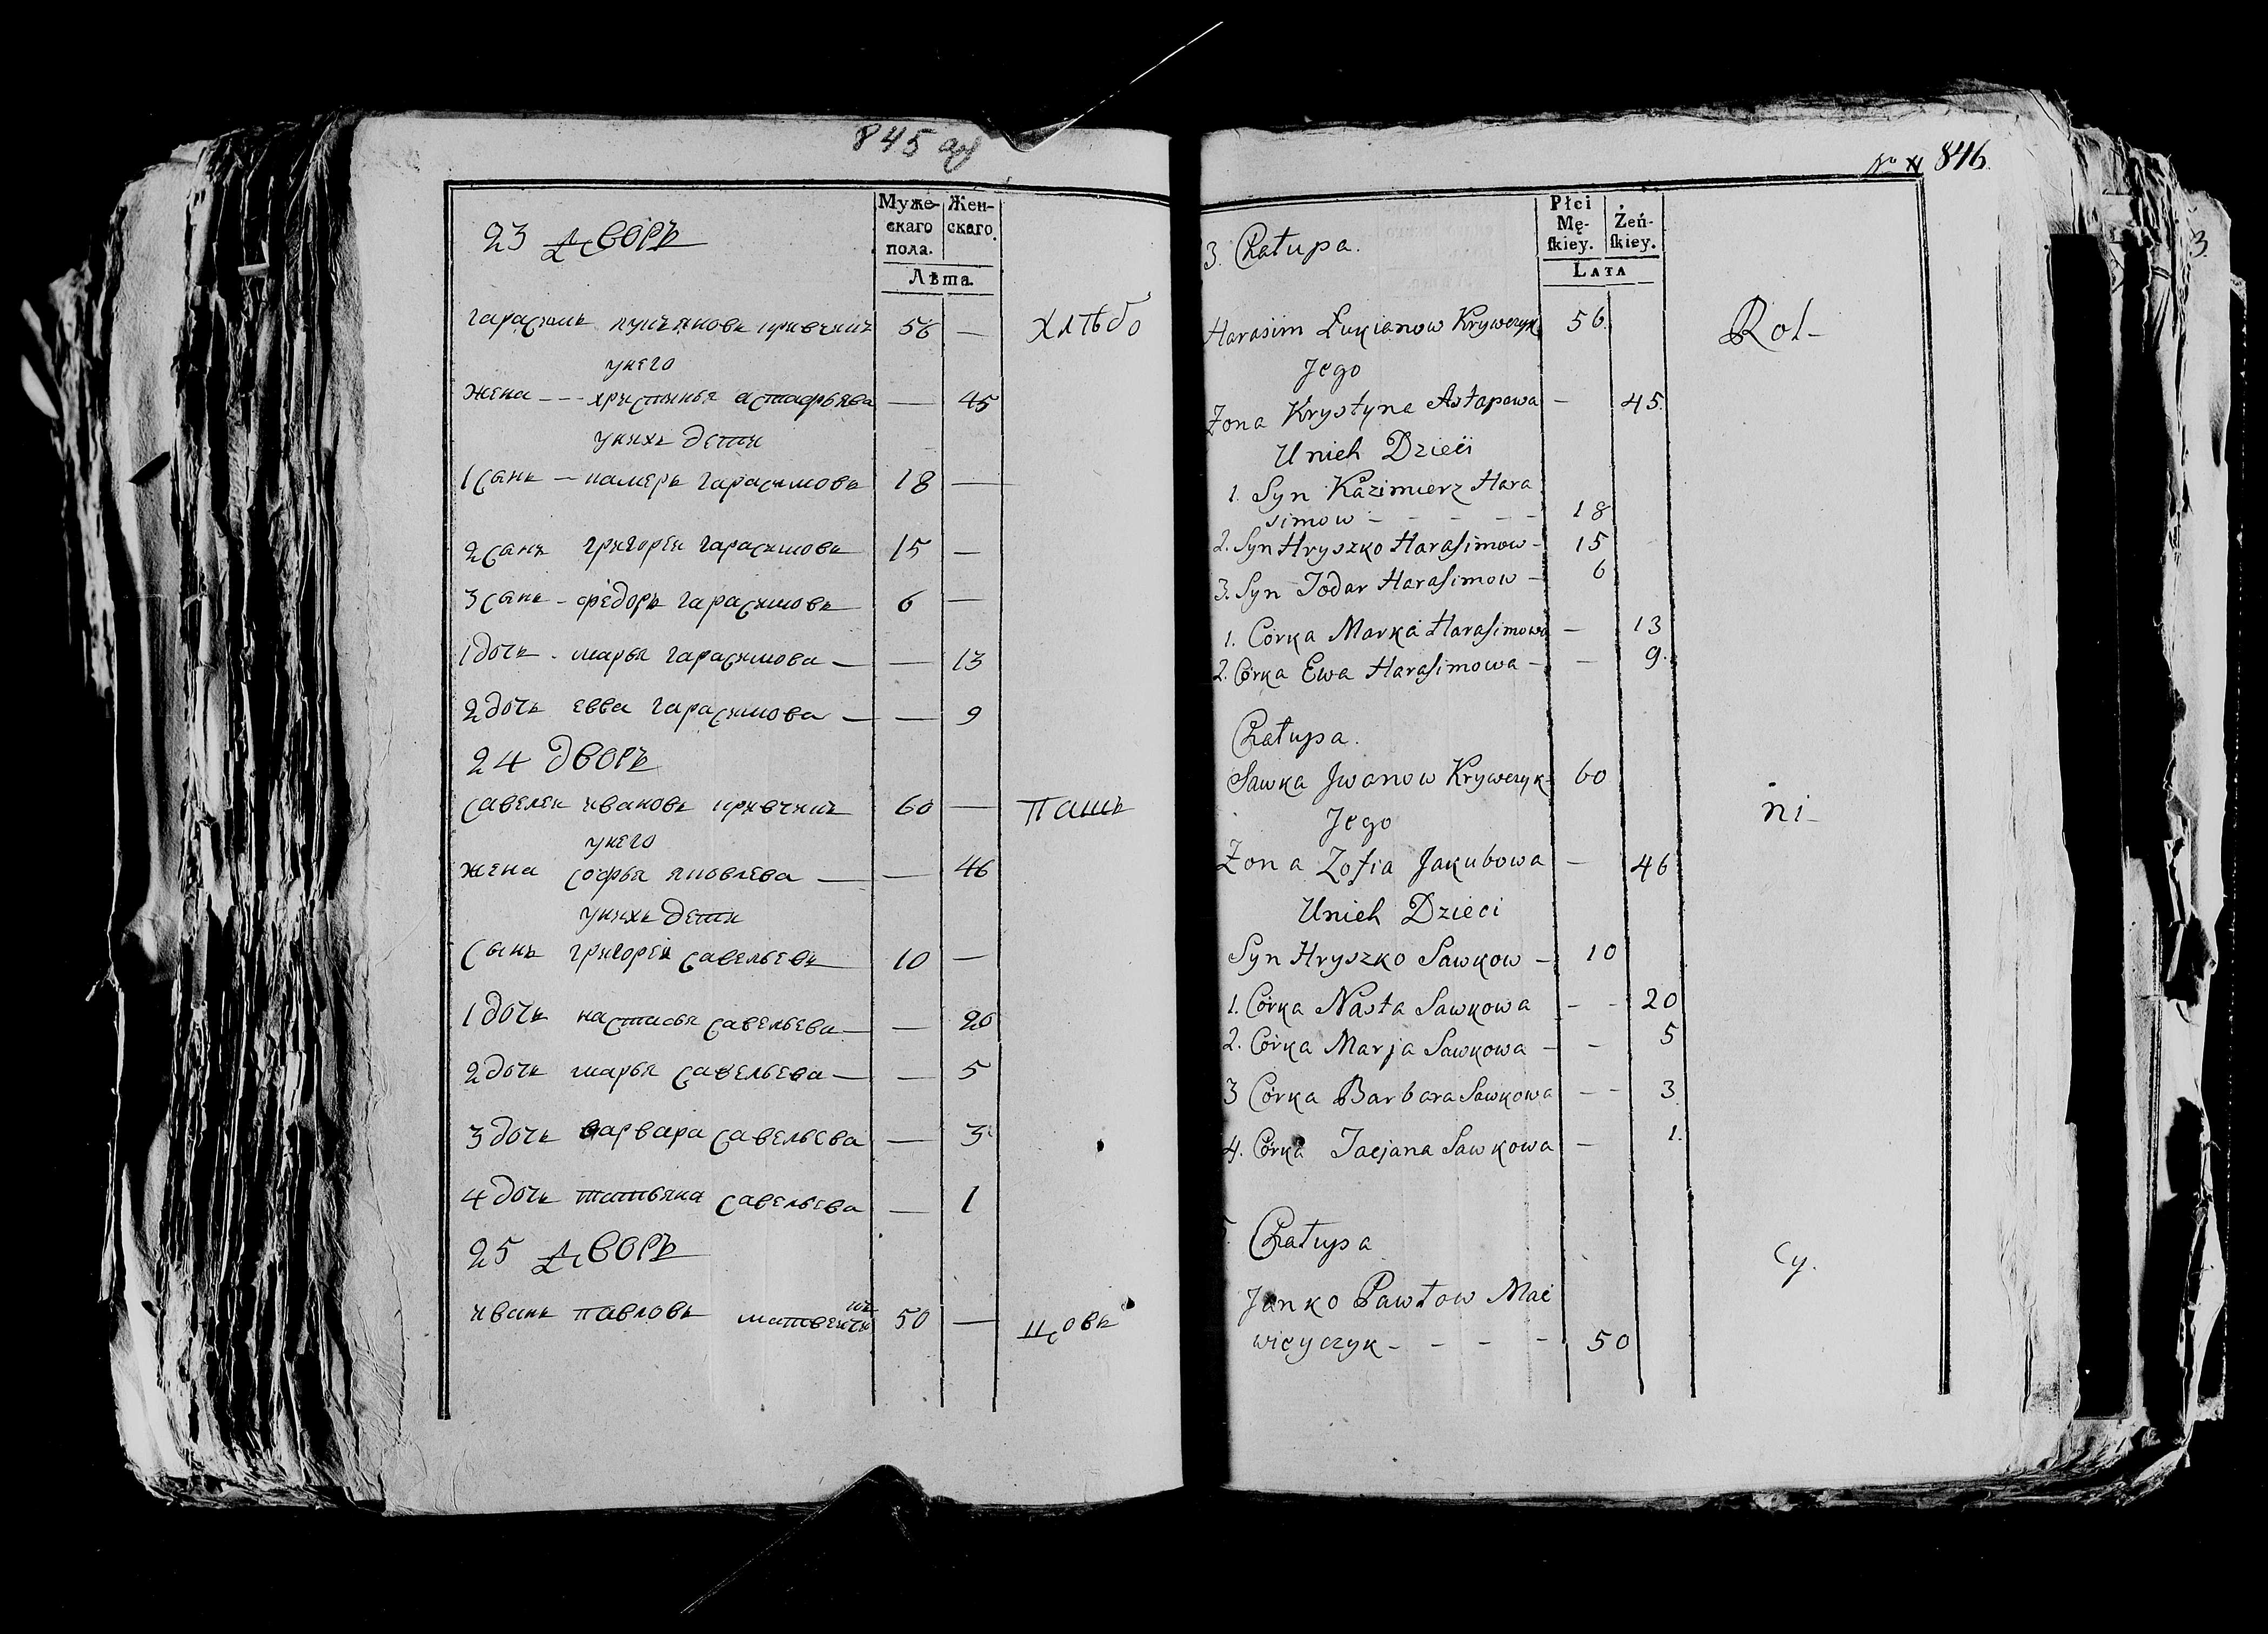 845 об
23 дворъ
Муже-
скаго
пола.
Жен-
скаго.
Лѣта.
гарасимъ лукьяновъ кривчикъ 56 —
хлѣбо
унего
жена --- христинья астафьява — 45
унихъ дети
1 сынъ — казмеръ гарасимовъ 18 —
2 сынъ григорей гарасимовъ 15 —
3 сынъ - фёдоръ гарасимовъ 6 —
1 дочь - марья гарасимова — — 13
2 дочь евва гарасимова — — 9
24 дворъ
савелей ивановъ кривчикъ 60 —
пашъ
унего
жена софья яковлева — — 46
унихъ дети
сынъ григорей савельевъ 10 —
1 дочь настасья савельева — — 20
2 дочь марья савельева — — 5
3 дочь варвара савельева — 3
4 дочь татьяна савельева — 1
25 дворъ
иванъ павловъ матвейчикъ 50 —
цовъ
846.
3. Chałupa.
Płci
Mę-
ſkiey.
Żeń-
ſkiey.
Lata
Harasim Łukianow Krywczyk 56.
Rol-
Jego
Żona Krystyna Astapowa — 45.
Unich Dzieci
1. Syn Kazimierz Hara
simow - - - - - 18
2. Syn Hryszko Haraſimow - 15
3. Syn Todar Haraſimow - 6
1. Córka Marka Haraſimowa — 13
2. Córka Ewa Haraſimowa - - 9.
Chałupa.
Sawka Jwanow Krywczyk 60
ni-
Jego
Żona Zofia Jakubowa — 46
Unich Dzieci
Syn Hryszko Sawkow - 10
1. Córka Nasta Sawkowa - - 20
2. Córka Marja Sawkowa - - 5
3 Córka Barbara Sawkowa - - 3
4. Córka Tacjana Sawkowa - 1.
Chałupa
cy.
Janko Pawłow Mac
wieyczyk - - - - 50